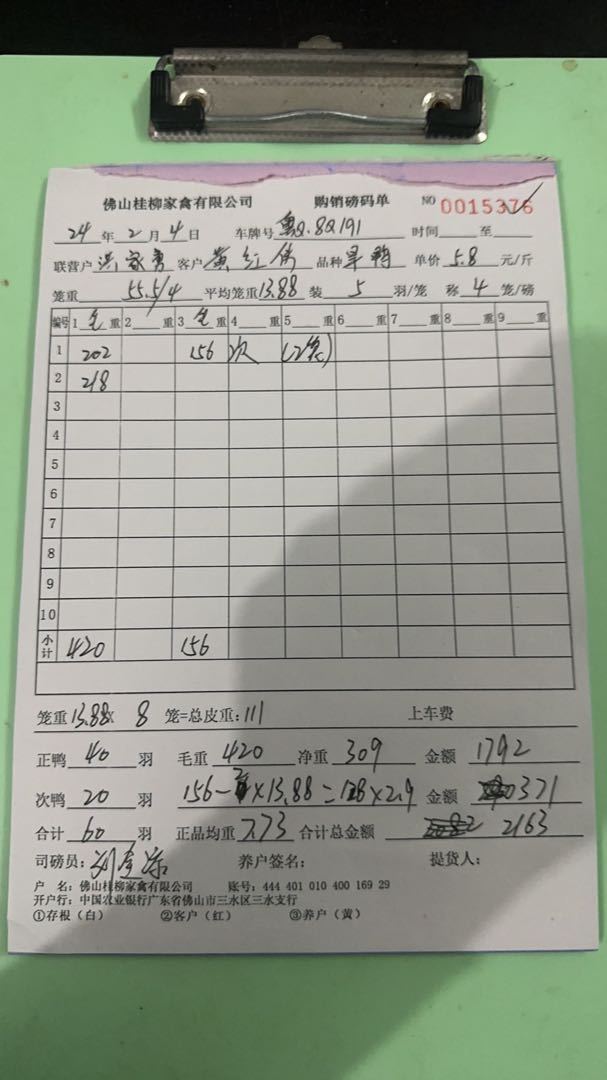 佛山桂柳家禽有限公司 购销磅码单 NO 0015376
24年2月4日 车牌号 粤Q.8Q191 时间 至
联营户 洪家勇 客户 黄红伟 品种 旱鸭 单价 5.8 元/斤
笼重 55.5/4 平均笼重13.88 装 5 羽/笼 称 4 笼/磅
编号 1 毛 重 2 重 3 毛 重 4 重 5 重 6 重 7 重 8 重 9 重
1 202 156 次 (2笼)
2 218
3
4
5
6
7
8
9
10
小计 420 156
笼重 13.88X 8 笼=总皮重:111 上车费
正鸭 40 羽 毛重 420 净重 309 金额 1792
次鸭 20 羽 156- ×13.88=128×2.9 金额 371
合计 60 羽 正品均重 7.73 合计总金额 2163
司磅员: 养户签名: 提货人:
户 名: 佛山桂柳家禽有限公司 账号: 444 401 010 400 169 29
开户行: 中国农业银行广东省佛山市三水区三水支行
①存根(白) ②客户(红) ③养户(黄)